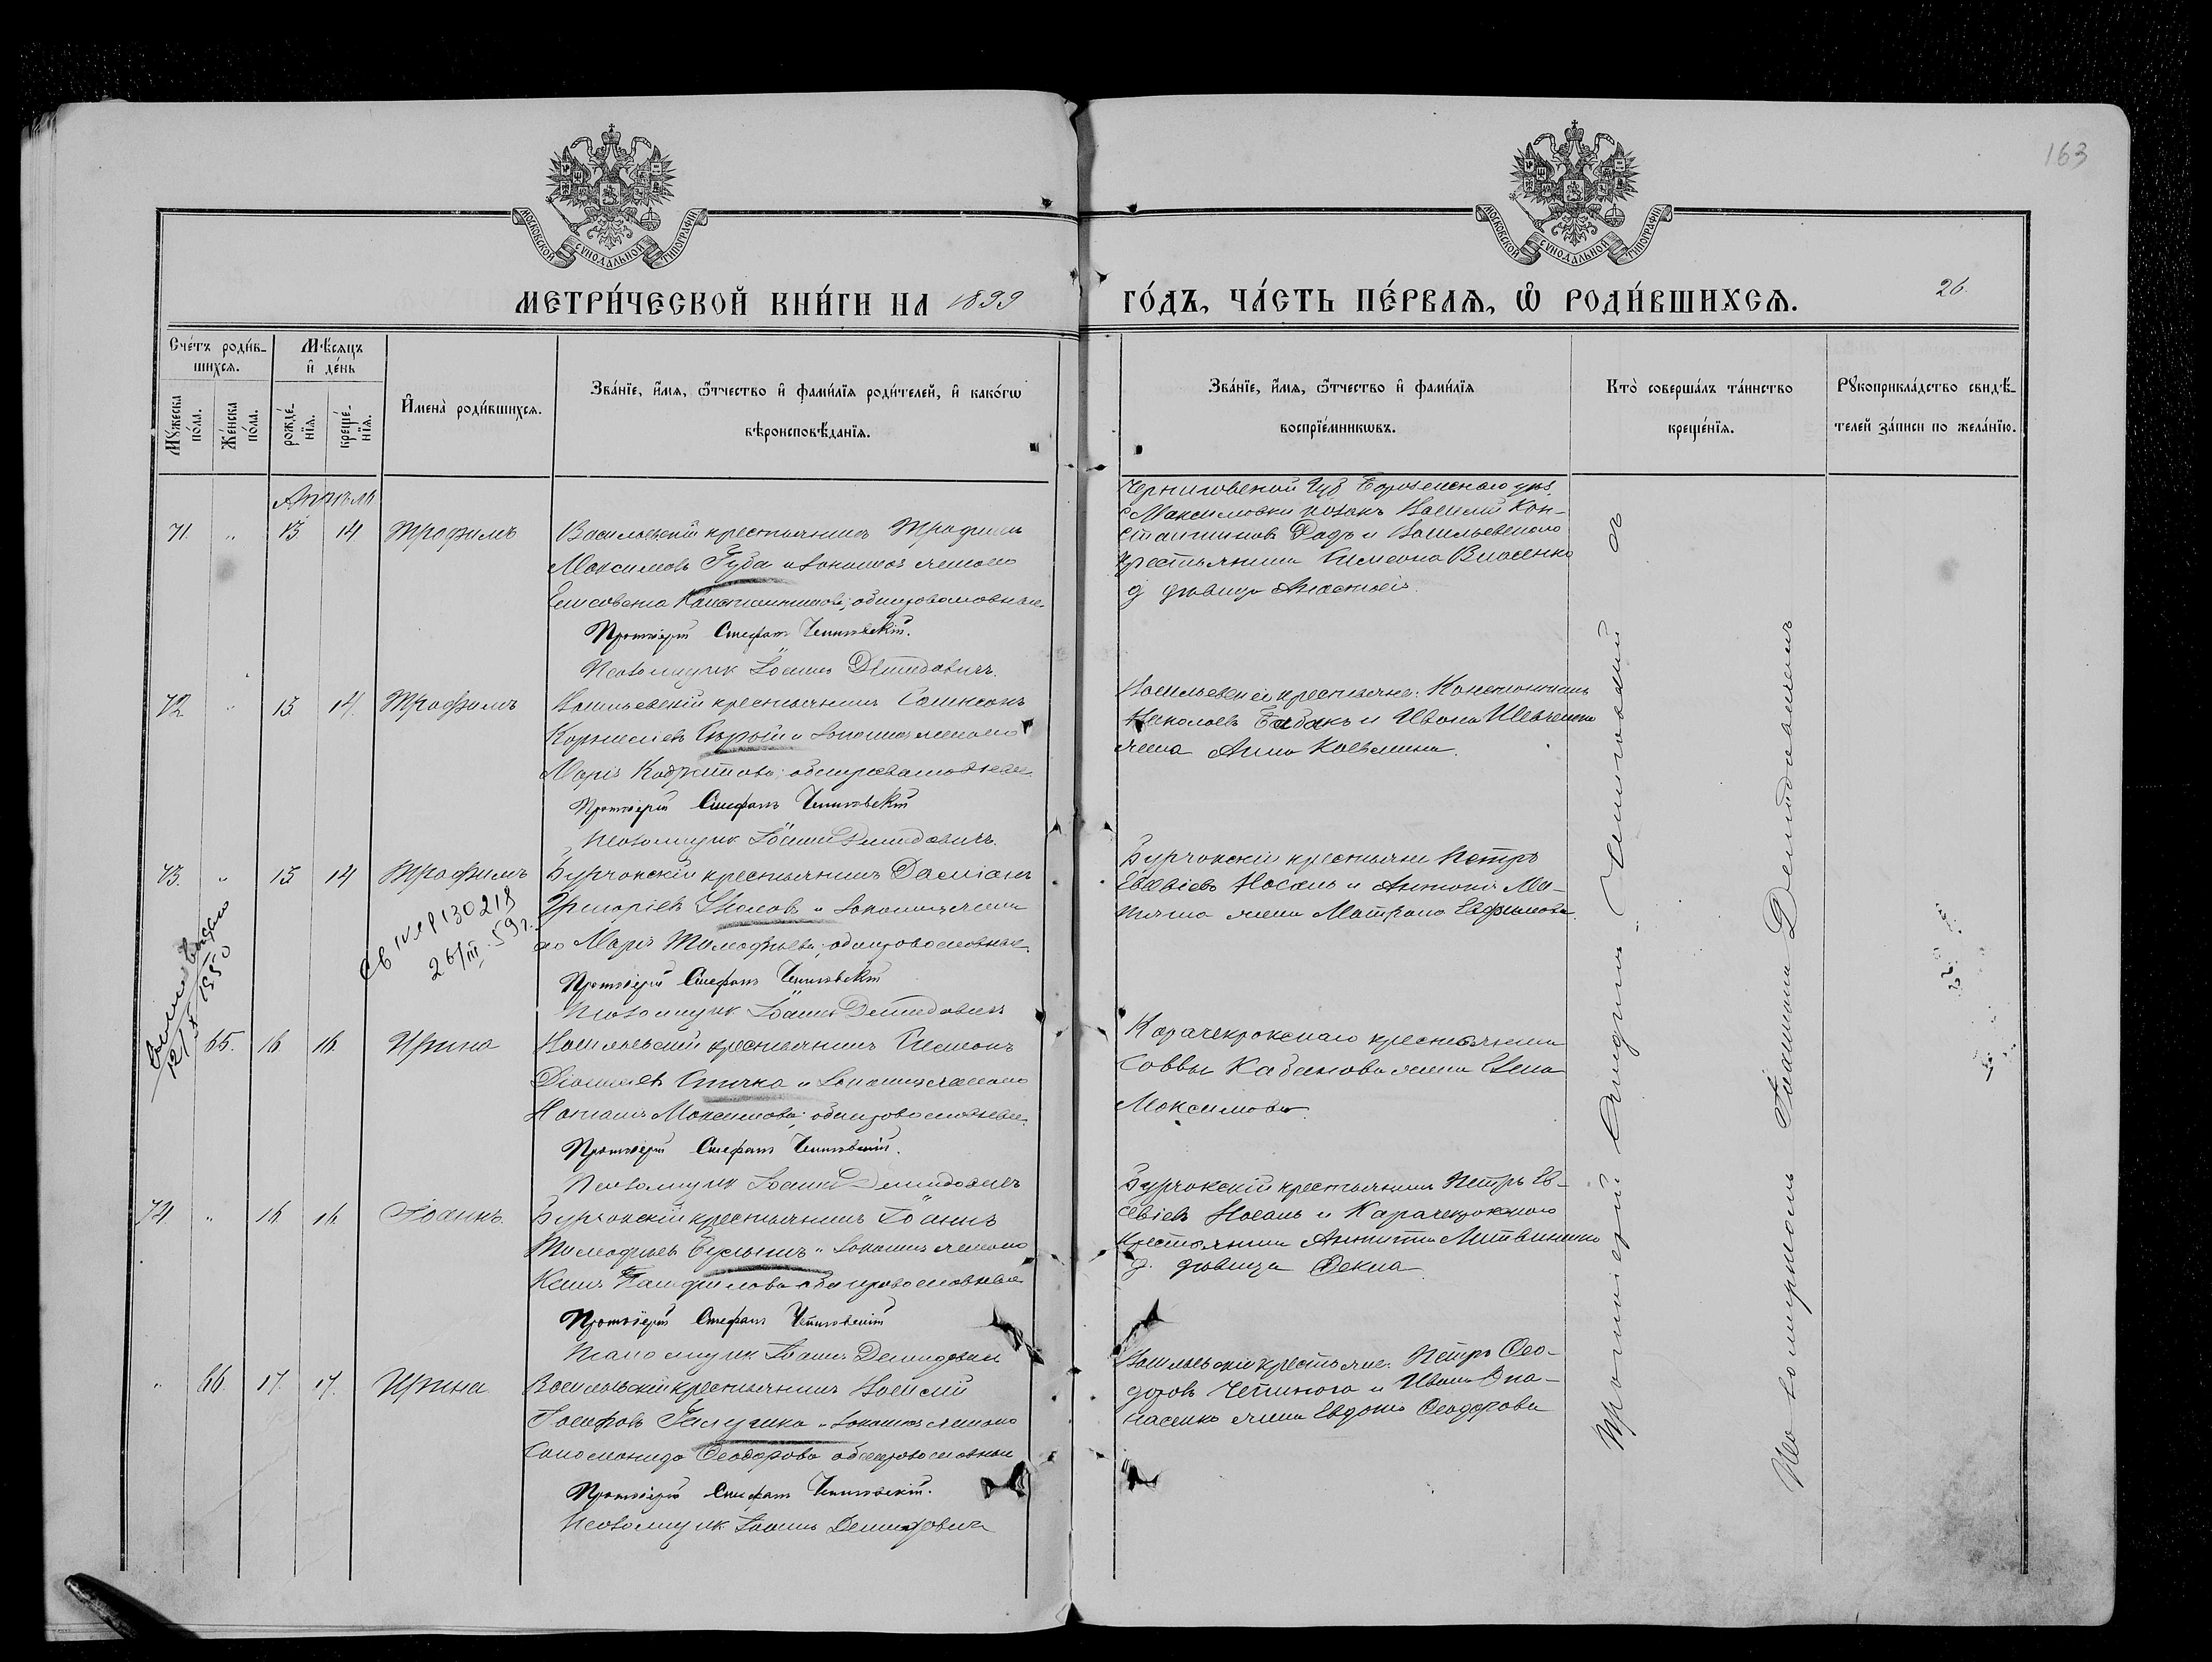 163
МОСКОВСКОЙ СУНОДАЛЬНОЙ ТИПОГРАФІИ
МОСКОВСКОЙ СУНОДАЛЬНОЙ ТИПОГРАФІИ
МЕТРИ́ЧЕСКОЙ КНИ́ГИ НА 1899
ГО́ДЪ, ЧА́СТЬ ПЕ́РВАѦ, Ѡ҆ РОДИ́ВШИХСѦ.
26.
Сче́тъ роди́в-
шихсѧ.
Мꙋ́жеска по́ла.
Же́нска по́ла.
Мѣ́сѧцъ
и҆ де́нь
рожде́-
нїѧ.
креще́-
нїѧ.
И҆мена̀ роди́вшихсѧ.
Зва́нїе, и҆́мѧ, ѻ҆́тчество и҆ фами́лїѧ роди́телей, и҆ како́гѡ
вѣроисповѣ́данїѧ.
Зва́нїе, и҆́мѧ, ѻ҆́тчество и҆ фами́лїѧ
воспрїе́мникѡвъ.
Кто̀ соверша́лъ та́инство
креще́нїѧ.
Рꙋкоприкла́дство свидѣ́-
телей за́писи по жела́нїю.
Апрѣль
71. " 13 14 Трофимъ
Васильевскій крестьянинъ Трофимъ
Максимовъ Губа и законная жена его
Елисавета Константинова; оба православные.
Протоіерей Стефанъ
Псаломщикъ Іоаннъ Демидовичъ.
Черниговской Губ.
с. Максимовки козакъ Василій Кон-
стантиновъ и Васильевскаго
крестьянина Симеона
д. девица Анастасія.
72 " 13 14. Трофимъ
Васильевскій крестьянинъ Сампсонъ
Корниліевъ и законная жена его
Марія; оба православные.
Протоіерей Стефанъ
Псаломщикъ Іоаннъ Демидовичъ.
Васильевскіе крестьяне: Константинъ
Николаевъ Бабакъ и Ивана Шевченка
жена Анна Козьмина.
73. " 13 14 Трофимъ
26/III 59 г.
Бурчокскій крестьянинъ Даміанъ
Григоріевъ и законная жена
его Марія Тимофеева; оба православные.
Протоіерей Стефанъ
Псаломщикъ Іоаннъ Демидовичъ
Бурчокскіе крестьяне Петръ
Евсевіевъ Носань и Антонія
жена Матрона Евфимова.
1950
65. 16 16. Ирина
Васильевскій крестьянинъ Симеонъ
Спичка и законная жена его
Наталія Максимова; оба православные.
Протоіерей Стефанъ
Псаломщикъ Іоаннъ Демидовичъ
Карачекрокскаго крестьянина
Саввы Кабанова жена Елена
Максимова.
74 " 16. 16. Іоаннъ.
Бурчокскій крестьянинъ Іоаннъ
Тимофеевъ и законная жена его
Ксенія Панфилова оба православные
Протоіерей Стефанъ
Псаломщикъ Іоаннъ Демидовичъ
Бурчокскій крестьянинъ Петръ Ев-
севіевъ Носань и Карачекрокскаго
крестьянина Литвиненко
д. девица Фекла
" 66. 17. 17. Ирина
Васильевскій крестьянинъ Василій
Іосифовъ Галушка и законная жена его
Соломонида Феодорова оба православные
Протоіерей Стефанъ
Псаломщикъ Іоаннъ Демидовичъ
Васильевскіе крестьяне: Петръ Фео-
доровъ и Ивана Опа-
насенко жена Евдокія Феодорова
Протоіерей съ
Псаломщикомъ Іоанномъ Демидовичемъ